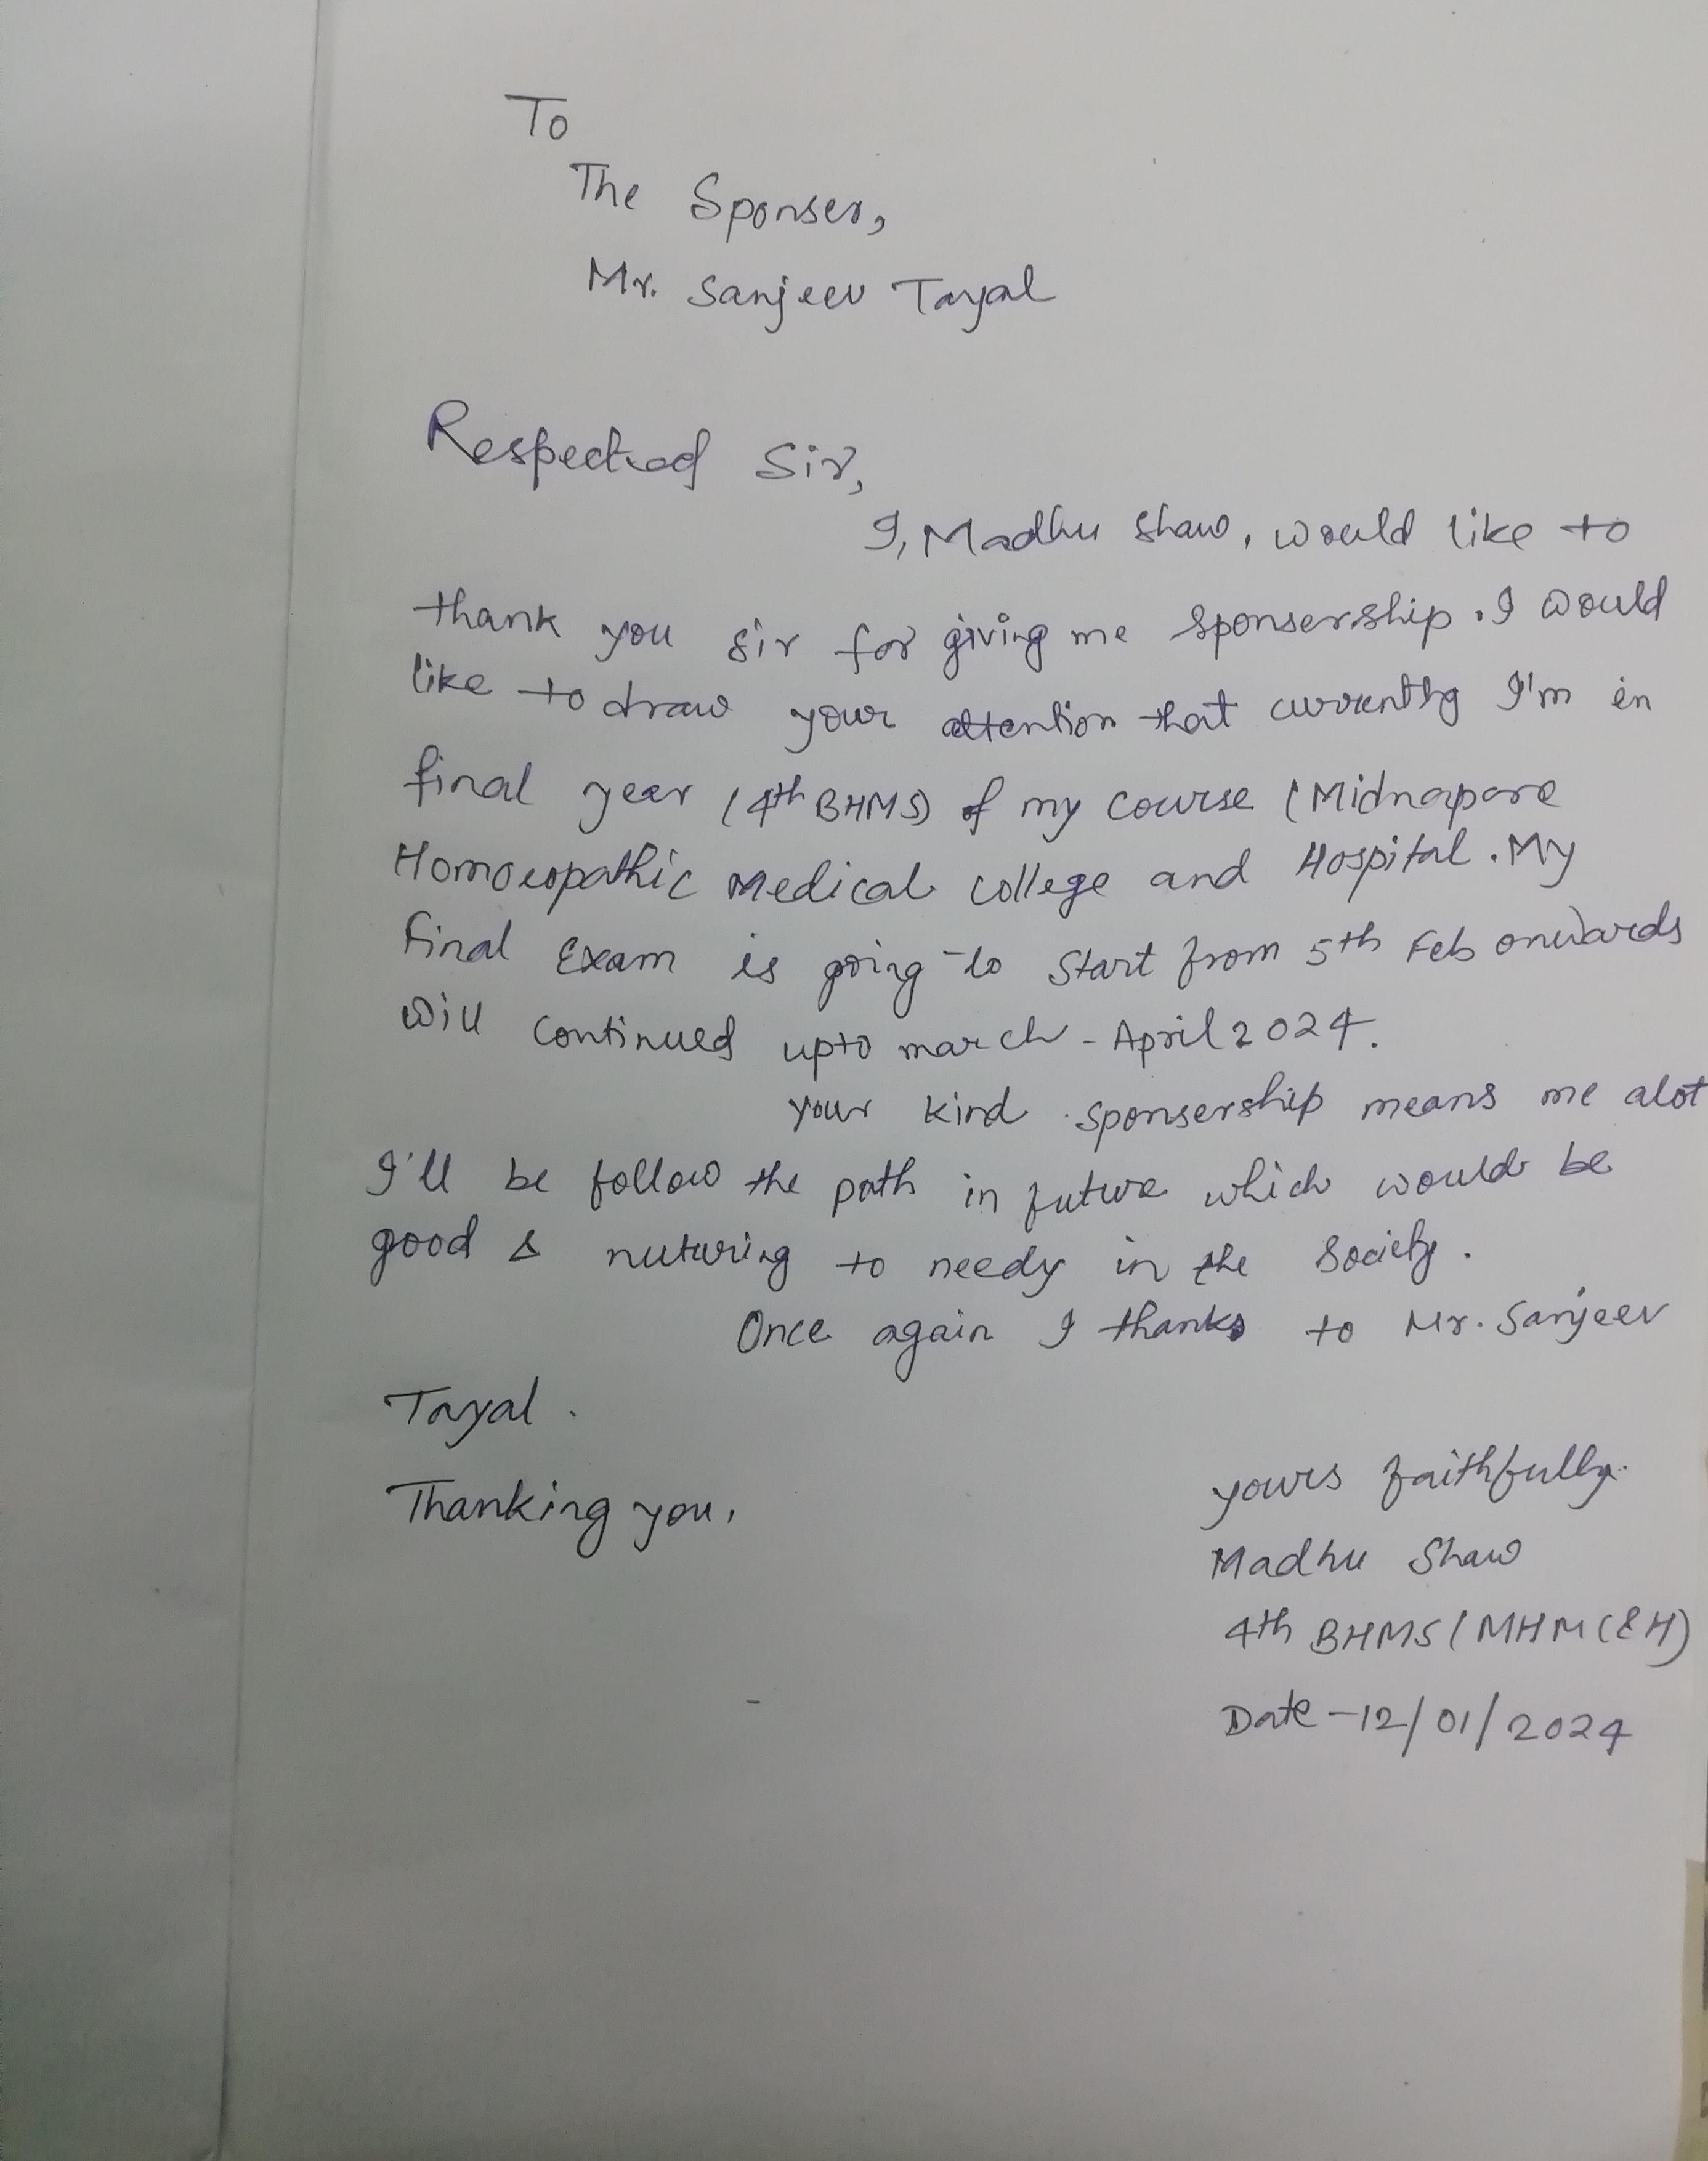 To
The Sponser,
Mr. Sanjeev Tayal
Respected Sir,
I, Madhu Shaw, would like to
thank you sir for giving me sponsership. I would
like to draw your attention that currently I'm in
final year (4th BHMS) of my course (Midnapore
Homoeopathic Medical college and Hospital. My
final Exam is going to start from 5th Feb onwards
will continued upto march - April 2024.
your kind sponsership means me alot
I'll be follow the path in future which would be
good & nuturing to needy in the society.
Once again I thanks to Mr. Sanjeev
Tayal.
Thanking you,
yours faithfully.
Madhu Shaw
4th BHMS (MHMC&H)
Date - 12/01/2024